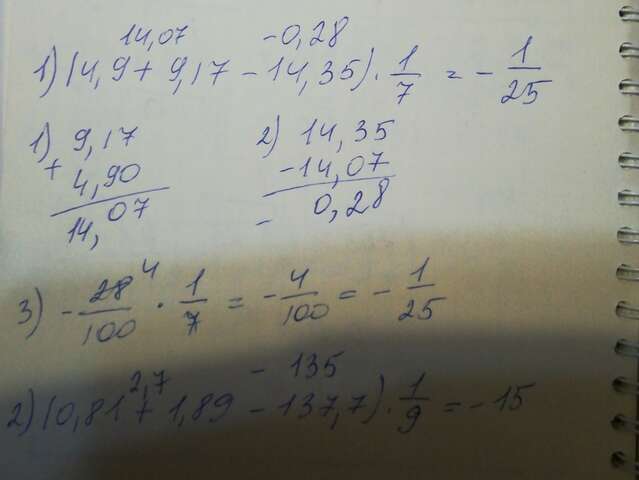 14,07 -0,28
1) (4,9 + 9,17 - 14,35) · 1/7 = - 1/25
1) 9,17
+ 4,90
14,07
2) 14,35
- 14,07
- 0,28
3) - 28/100 4 · 1/7 = - 4/100 = - 1/25
2,7 - 135
2) (0,81 + 1,89 - 137,7) · 1/9 = - 15